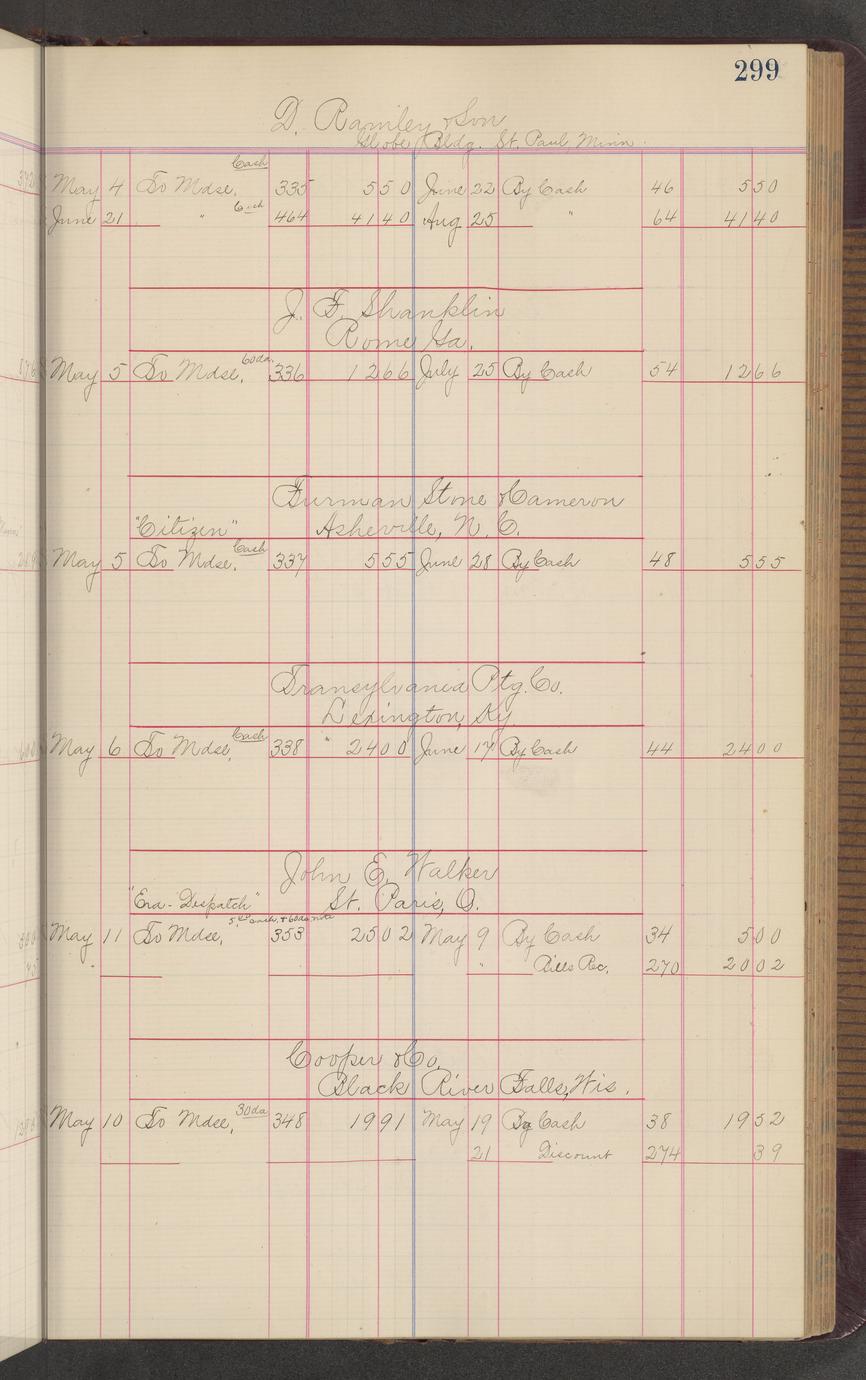 299
D. Ramley & Son
Globe Bldg. St. Paul, Minn.
Cash
May 4 To Mdse. 335 5 50 June 22 By Cash 46 5 50
June 21 " Cash 464 41 40 Aug 25 " 64 41 40
J. F. Shanklin
Rome Ga.
May 5 To Mdse. 60da. 336 12 66 July 25 By Cash 54 12 66
Furman Stone & Cameron
"Citizen" Asheville, N. C.
May 5 To Mdse. Cash 337 5 55 June 28 By Cash 48 5 55
Transylvania Ptg. Co.
Lexington, Ky
May 6 To Mdse. Cash 338 24 00 June 17 By Cash 44 24 00
John E. Walker
"Era-Dispatch" St. Paris, O.
5.00 cash + 60da note
May 11 To Mdse. 353 25 02 May 9 By Cash 34 5 00
" Bills Rec. 270 20 02
Cooper & Co.
Black River Falls, Wis.
May 10 To Mdse. 30da 348 19 91 May 19 By Cash 38 19 52
21 Discount 274 39